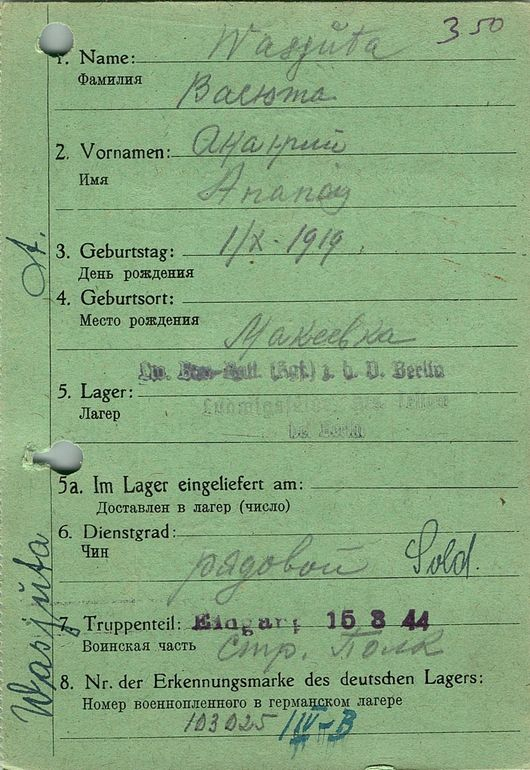 3 50
1. Name: Wasjuta
Фамилия
Васюта
2. Vornamen:
Имя
3. Geburtstag: 1/X-1919
День рождения
4. Geburtsort:
Место рождения
Макеевка
z. b. V. Berlin
5. Lager:
Лагер
Berlin
5a. Im Lager eingeliefert am:
Доставлен в лагер (число)
6. Dienstgrad:
Чин
рядовой Sold.
7. Truppenteil: Eingang 15 8 44
Воинская часть стр. Полк
8. Nr. der Erkennungsmarke des deutschen Lagers:
Номер военнопленного в германском лагере
103025 IV-B
Wasjuta A.